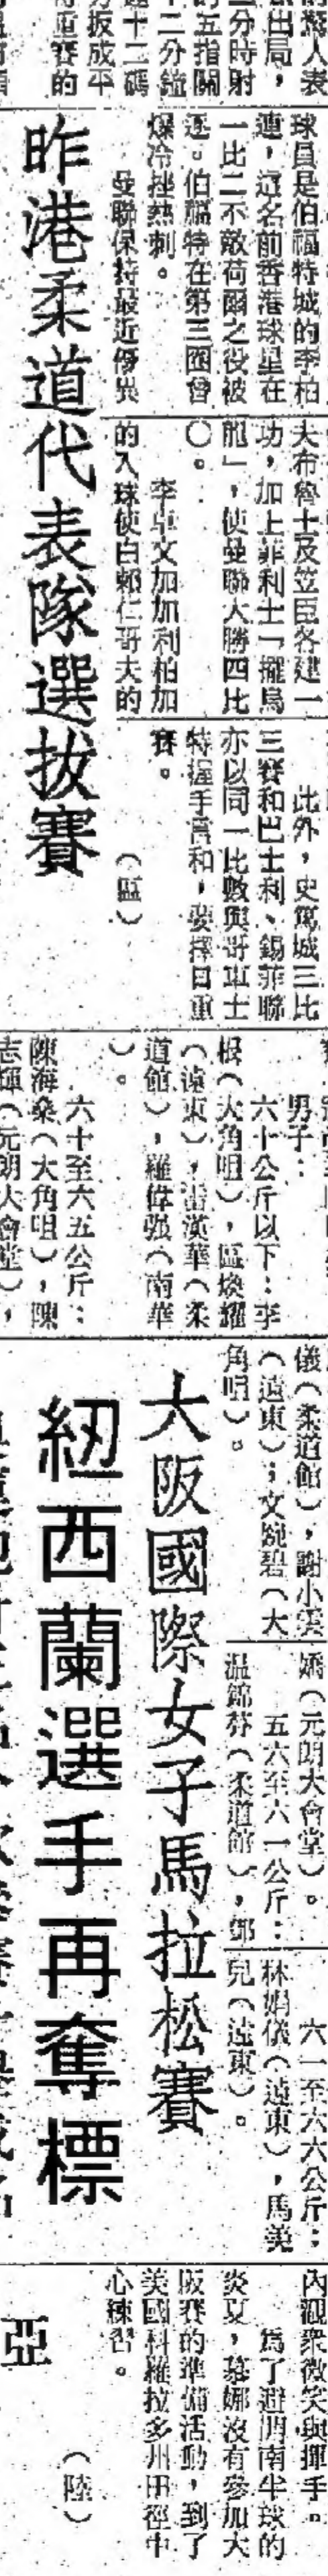 出局，
分時射
的五指關
十二分鐘
達十二碼
扳成平
重賽的
球員是伯福特城的李柏
連，這名前香港球星在
一比二不敵荷爾之役被
逐。伯福特在第三圈曾
爆冷挫熱刺。
曼聯保持最近優異
夫布魯士及笠臣各建一
功，加上菲利士「擺烏
龍」，使曼聯大勝四比
〇。
李卓文加加利柏加
的入球使白賴仁哥夫的
此外，史篤城三比
三賽和巴士利、錫菲聯
亦以同一比數與哥車士
特握手言和，要擇日重
賽。
（區）
昨港柔道代表隊選拔賽
男子：
六十公斤以下：李
根（大角咀），區煥耀
（遠東），雷漢華（柔
道館），羅偉强（南華
）。
六十至六五公斤：
陳海燊（大角咀），陳
志輝（元朗大會堂），
儀（柔道館），謝小雲
（遠東）；文婉碧（大
角咀）。
嬌（元朗大會堂）。
五六至六一公斤：
温錦芬（柔道館），鄧
六一至六六公斤：
林娟儀（遠東），馬美
兒（遠東）。
大阪國際女子馬拉松賽
紐西蘭選手再奪標
內觀衆微笑與揮手。
爲了避開南半球的
炎夏，慕娜沒有參加大
阪賽的準備活動，到了
美國科羅拉多州田徑中
心練習。
（陸）
亞